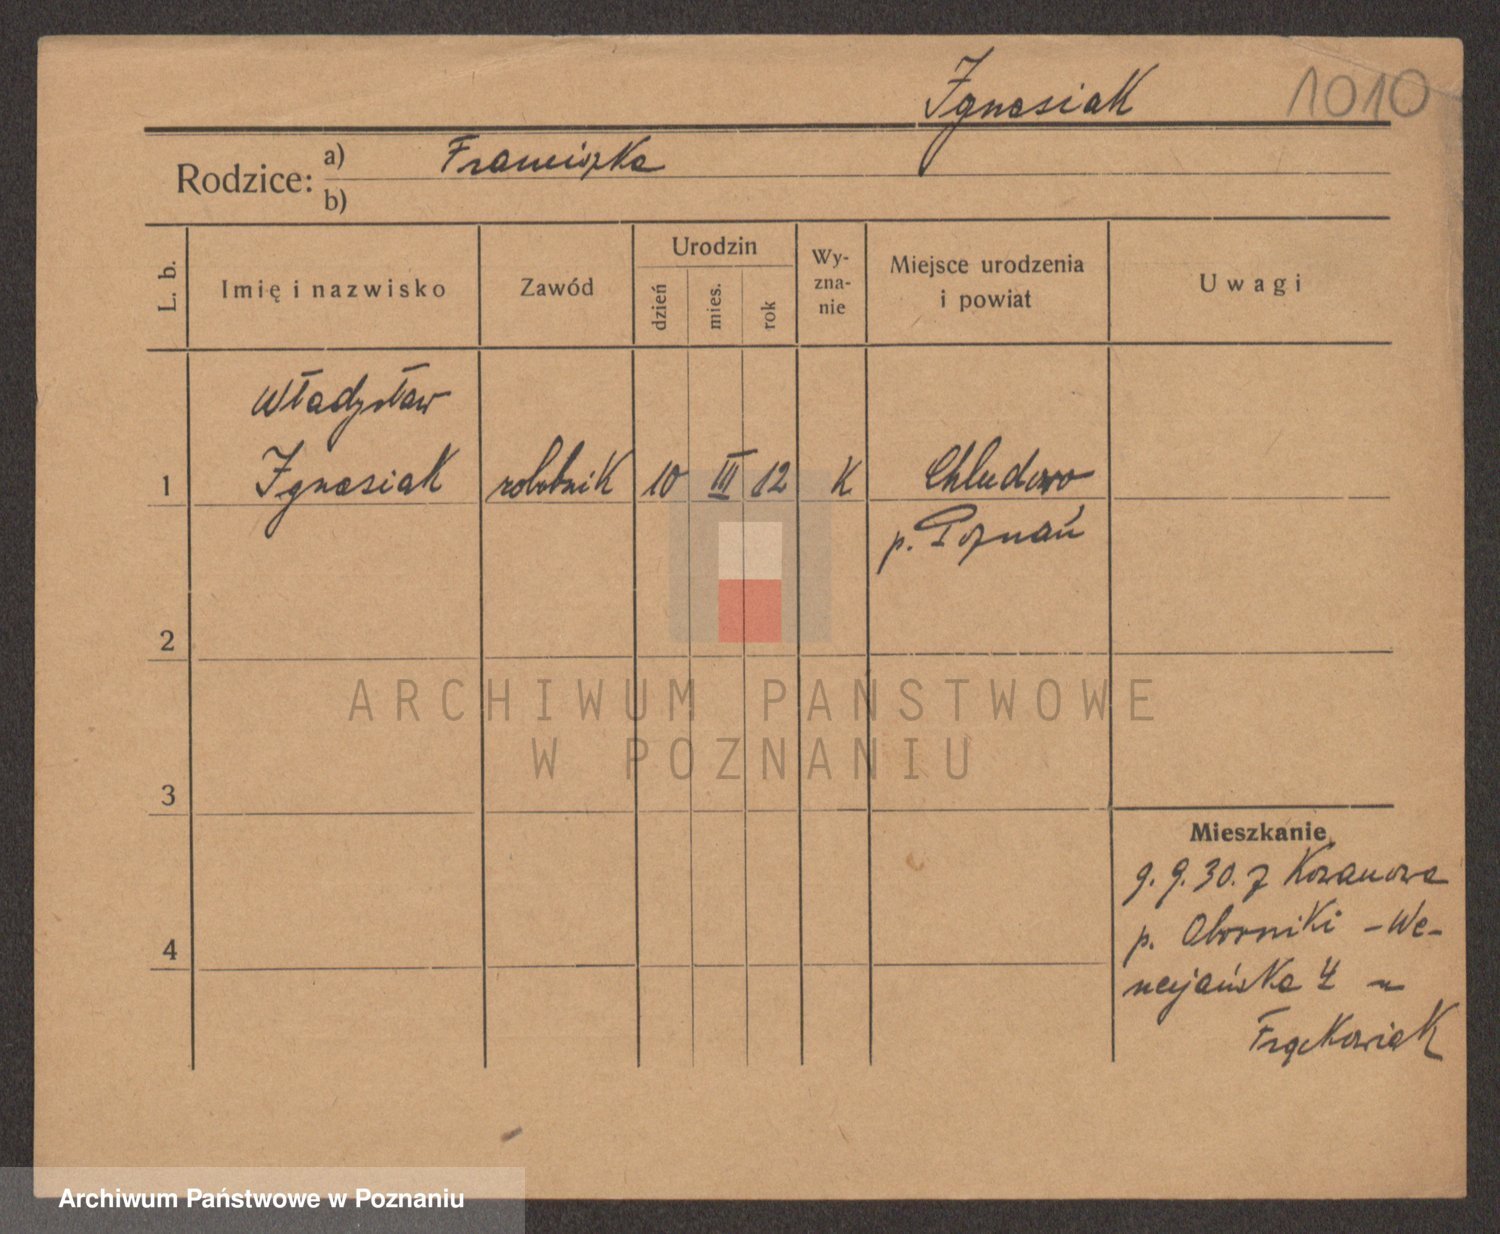 Ignasiak 1010
Rodzice: a) Franciszka
b)
L. b.
Imię i nazwisko
Zawód
Urodzin
dzień
mies.
rok
Wy-
zna-
nie
Miejsce urodzenia
i powiat
Uwagi
Władysław
1 Ignasiak robotnik 10 III 12 K Chludowo
p. Poznań
2
ARCHIWUM PAŃSTWOWE
W POZNANIU
3
Mieszkanie
9. 9. 30. z
p. Oborniki - We-
necjańska 4 u
Frąckowiak
4
Archiwum Państwowe w Poznaniu